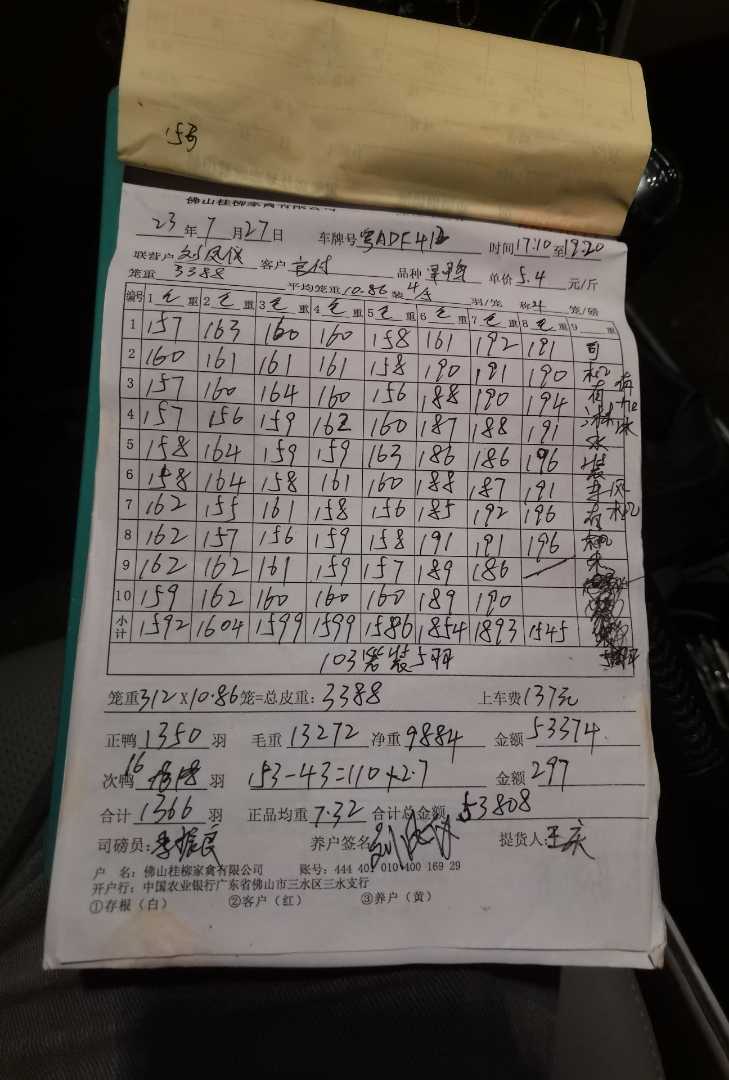 153
佛山桂柳家禽有限公司
23年7月27日 车牌号粤ADF412 时间17:10至19:20
联营户 刘凤仪 客户 品种 单价5.4元/斤
笼重3388 平均笼重10.86装4/5羽/笼 称4笼/磅
编号 1毛重 2毛重 3毛重 4毛重 5毛重 6毛重 7毛重 8毛重 9重
1 157 163 160 160 158 161 192 191 司
2 160 161 161 161 158 190 191 190 机
3 157 160 164 160 156 188 190 194 有
4 157 156 159 162 160 187 188 191 淋
5 158 164 159 159 163 186 186 196 水
6 158 164 158 161 160 188 187 191 装
7 162 155 161 158 156 185 192 196 车
8 162 157 156 159 158 191 191 196 有
9 162 162 161 159 157 189 186
10 159 162 160 160 160 189 190
小计 1592 1604 1599 1599 1586 1854 1893 1545
103笼装5羽
笼重312×10.86笼=总皮重:3388 上车费137元
正鸭1350羽 毛重13272 净重9884 金额53374
次鸭16羽 153-43=110×2.7 金额297
合计1366羽 正品均重7.32 合计总金额53808
司磅员: 养户签名 提货人:王庆
户 名:佛山桂柳家禽有限公司 账号:444 401 010 400 169 29
开户行:中国农业银行广东省佛山市三水区三水支行
①存根(白) ②客户(红) ③养户(黄)